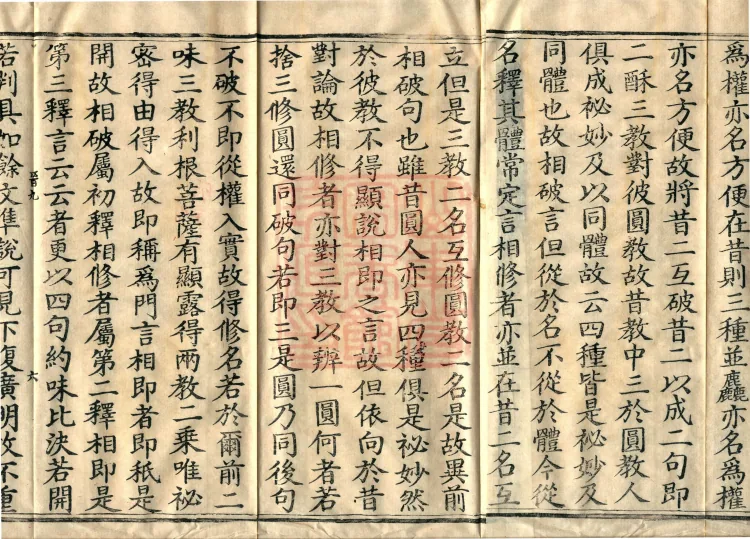 為權亦名方便在昔則三種並麤亦名為權
亦名方便故將昔二互破昔二以成二句即
二酥三教對彼圓教故昔教中三於圓教人
俱成祕妙及以同體故云四種皆是祕妙及
同體也故相破言但從於名不從於體今從
名釋其體常定言相修者亦並在昔二名互
立但是三教二名互修圓教二名是故異前
相破句也雖昔圓人亦見四種俱是祕妙然
於彼教不得顯說相即之言故但依向於昔
對論故相修者亦對三教以辨一圓何者若
捨三修圓還同破句若即三是圓乃同後句
不破不即從權入實故得修名若於爾前二
味三教利根菩薩有顯露得兩教二乘唯祕
密得由得入故即稱為門言相即者即秖是
開故相破屬初釋相修者屬第二釋相即是
第三釋言云云者更以四句約味比決若開
六
若判具如餘文準說可見下復廣明故不重